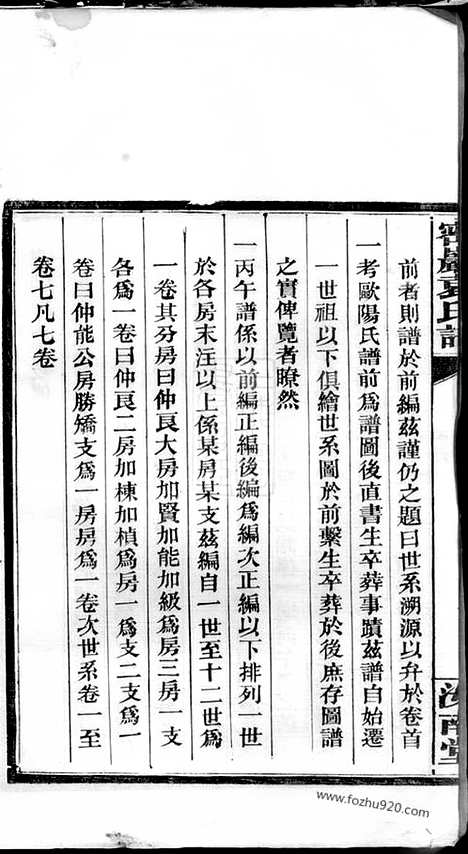 前者則譜於前編茲謹仍之題曰世系溯源以弁於卷首
一考歐陽氏譜前爲譜圖後直書生卒葬事蹟茲譜自始遷
一世祖以下俱繪世系圖於前繫生卒葬於後庶存圖譜
之實俾覽者瞭然
一丙午譜係以前編正編後編爲編次正編以下排列一世
於各房末注以上係某房某支茲編自一世至十二世爲
一卷其分房曰仲良大房加賢加能加級爲房三房一支
各爲一卷曰仲良二房加棟加楨爲房一爲支二支爲一
卷曰仲能公房勝矯支爲一房房爲一卷次世系卷一至
卷七凡七卷
www.fozhu920.com